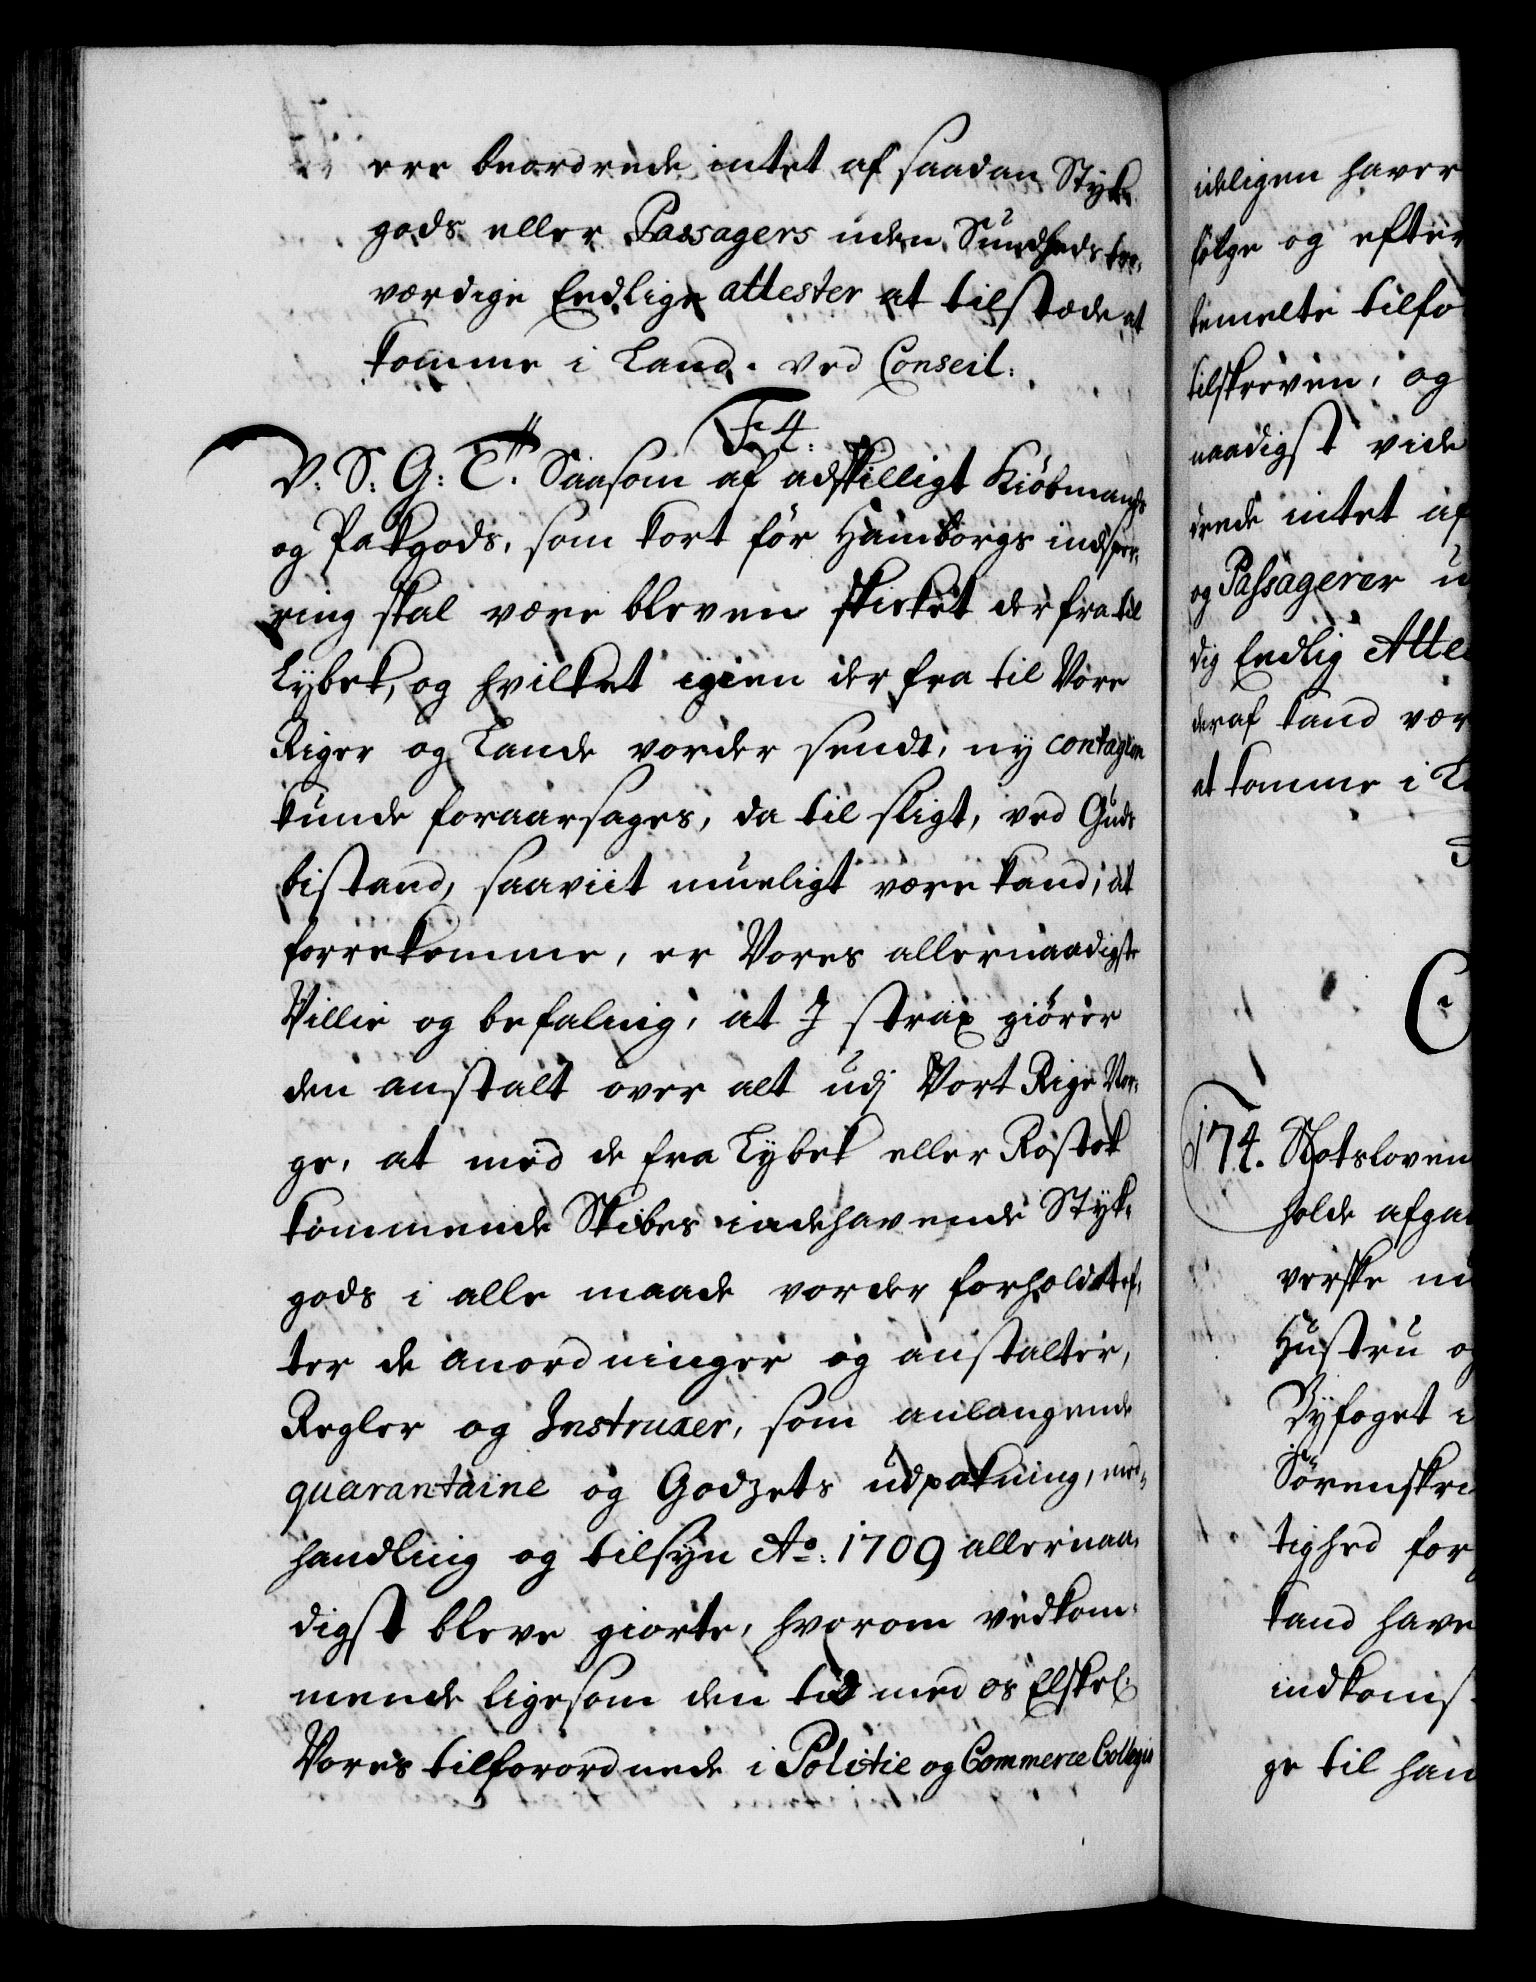 ere beordrede intet af saadan Stÿke
gods eller Passagers uden Sundheds tro-
værdige Eedlige attester at tilstæde at
komme i Land. ved Conseil:
F 4.
V: S: G: T. Saasom af adskilligt Kiöbmands
og Pakgods, som kort för Hamborgs indsper-
ring skal være bleven skicket der fra til
Lÿbek, og hvilket igien der fra til Vore
Riger og Lande vorder sendt, nÿ contagion
kunde foraarsages, da til sligt, ved Guds
bistand, saaviit mueligt være kand, at
forrekomme, er Vores allernaadigste
Villie og befaling, at I strax giörer
den anstalt over alt udj Vort Rige Nor-
ge, at med de fra Lÿbek eller Rostok
kommende Skibes indehavende Styk-
gods i alle maade vorder forholdt ef-
ter de anordninger og anstalter,
Regler og Instruxer, som anlangende
quarantaine og Godzets udpakning, med-
handling og tilsyn Ao: 1709 allernaa-
digst bleve giorte, hvorom vedkom-
mende ligesom den tid med os Elskel:
Vores tilforordnede i Politie og Commerce Collegio
ideligen haver
følge og efter
bemelte tilfo
tilskreven, og
naadigst vide
drede intet af
og Passagerer u
dig Eedlig Atte
deraf kand vær
at komme i La
174. Slotsloven
holde afga
verske
Hustru og
Byfoget i
Sörenskri
tighed for
kand have
indkoms
ge til han